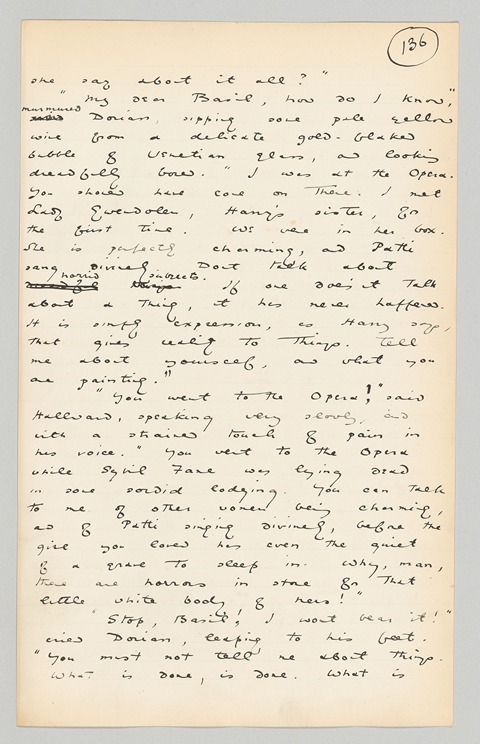 136
she say about it all?"
"My dear Basil, how do I know,"
murmured
Dorian, sipping some pale yellow
wine from a delicate gold-flaked
bubble of Venetian glass, and looking
dreadfully bored. "I was at the Opera.
You should have come on there. I met
Lady Gwendolen, Harry's sister, for
the first time. We were in her box.
She is perfectly charming, and Patti
sang divinely. Don't talk about
horrid subjects.
If one doesn't talk
about a thing, it has never happened.
It is simply expression, as Harry says,
that gives reality to things. Tell
me about yourself, and what you
are painting."
"You went to the Opera!," said
Hallward, speaking very slowly, and
with a strained touch of pain in
his voice. "You went to the Opera
while Sybil Vane was lying dead
in some sordid lodging. You can talk
to me of other women being charming,
and of Patti singing divinely, before the
girl you loved has even the quiet
of a grave to sleep in. Why, man,
there are horrors in store for that
little white body of hers!"
"Stop, Basil! I won't hear it!"
cried Dorian, leaping to his feet.
"You must not tell me about things.
What is done, is done. What is